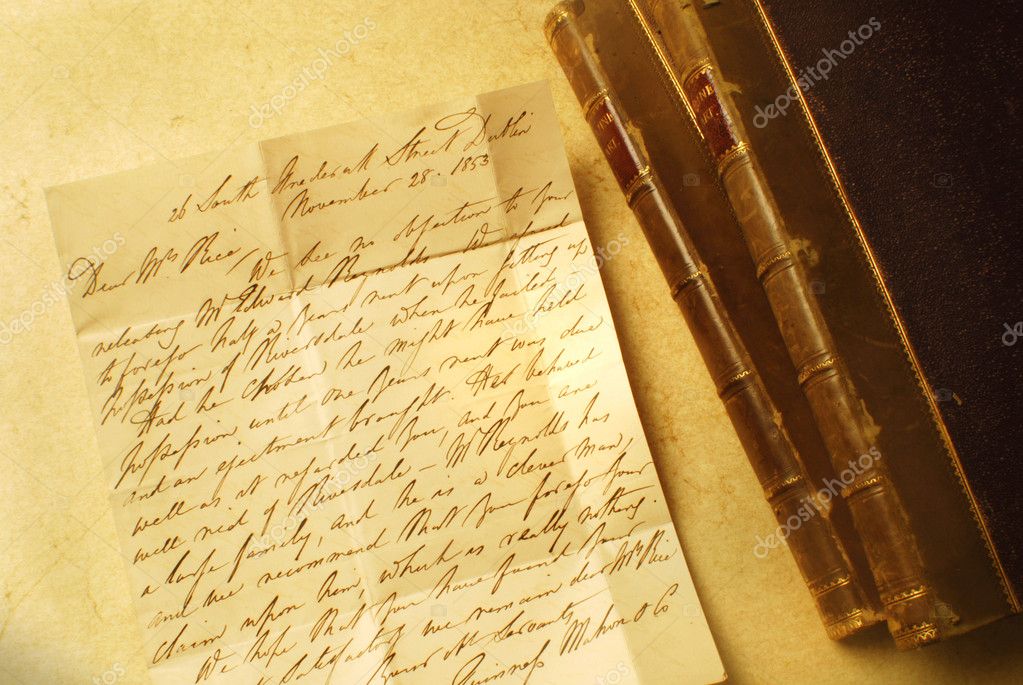 26 South Frederick Street Dublin
November 28. 1853
Dear Mrs Rice,
We see no objection to your
releasing Mr Edward Reynolds. We
to forego half a years rent upon getting up
possession of Riversdale when he failed.
Had he chosen he might have held
possession until one years rent was due
and an ejectment brought. He behaved
well as it regarded you, and you are
well rid of Riversdale – Mr Reynolds has
a large family, and he is a clever man,
and we recommend that you forego your
claim upon him, which is really nothing.
We hope that you have found your
satisfactory we remain dear Mrs Rice
Servants
Guinness Mahon & Co
depositphotos